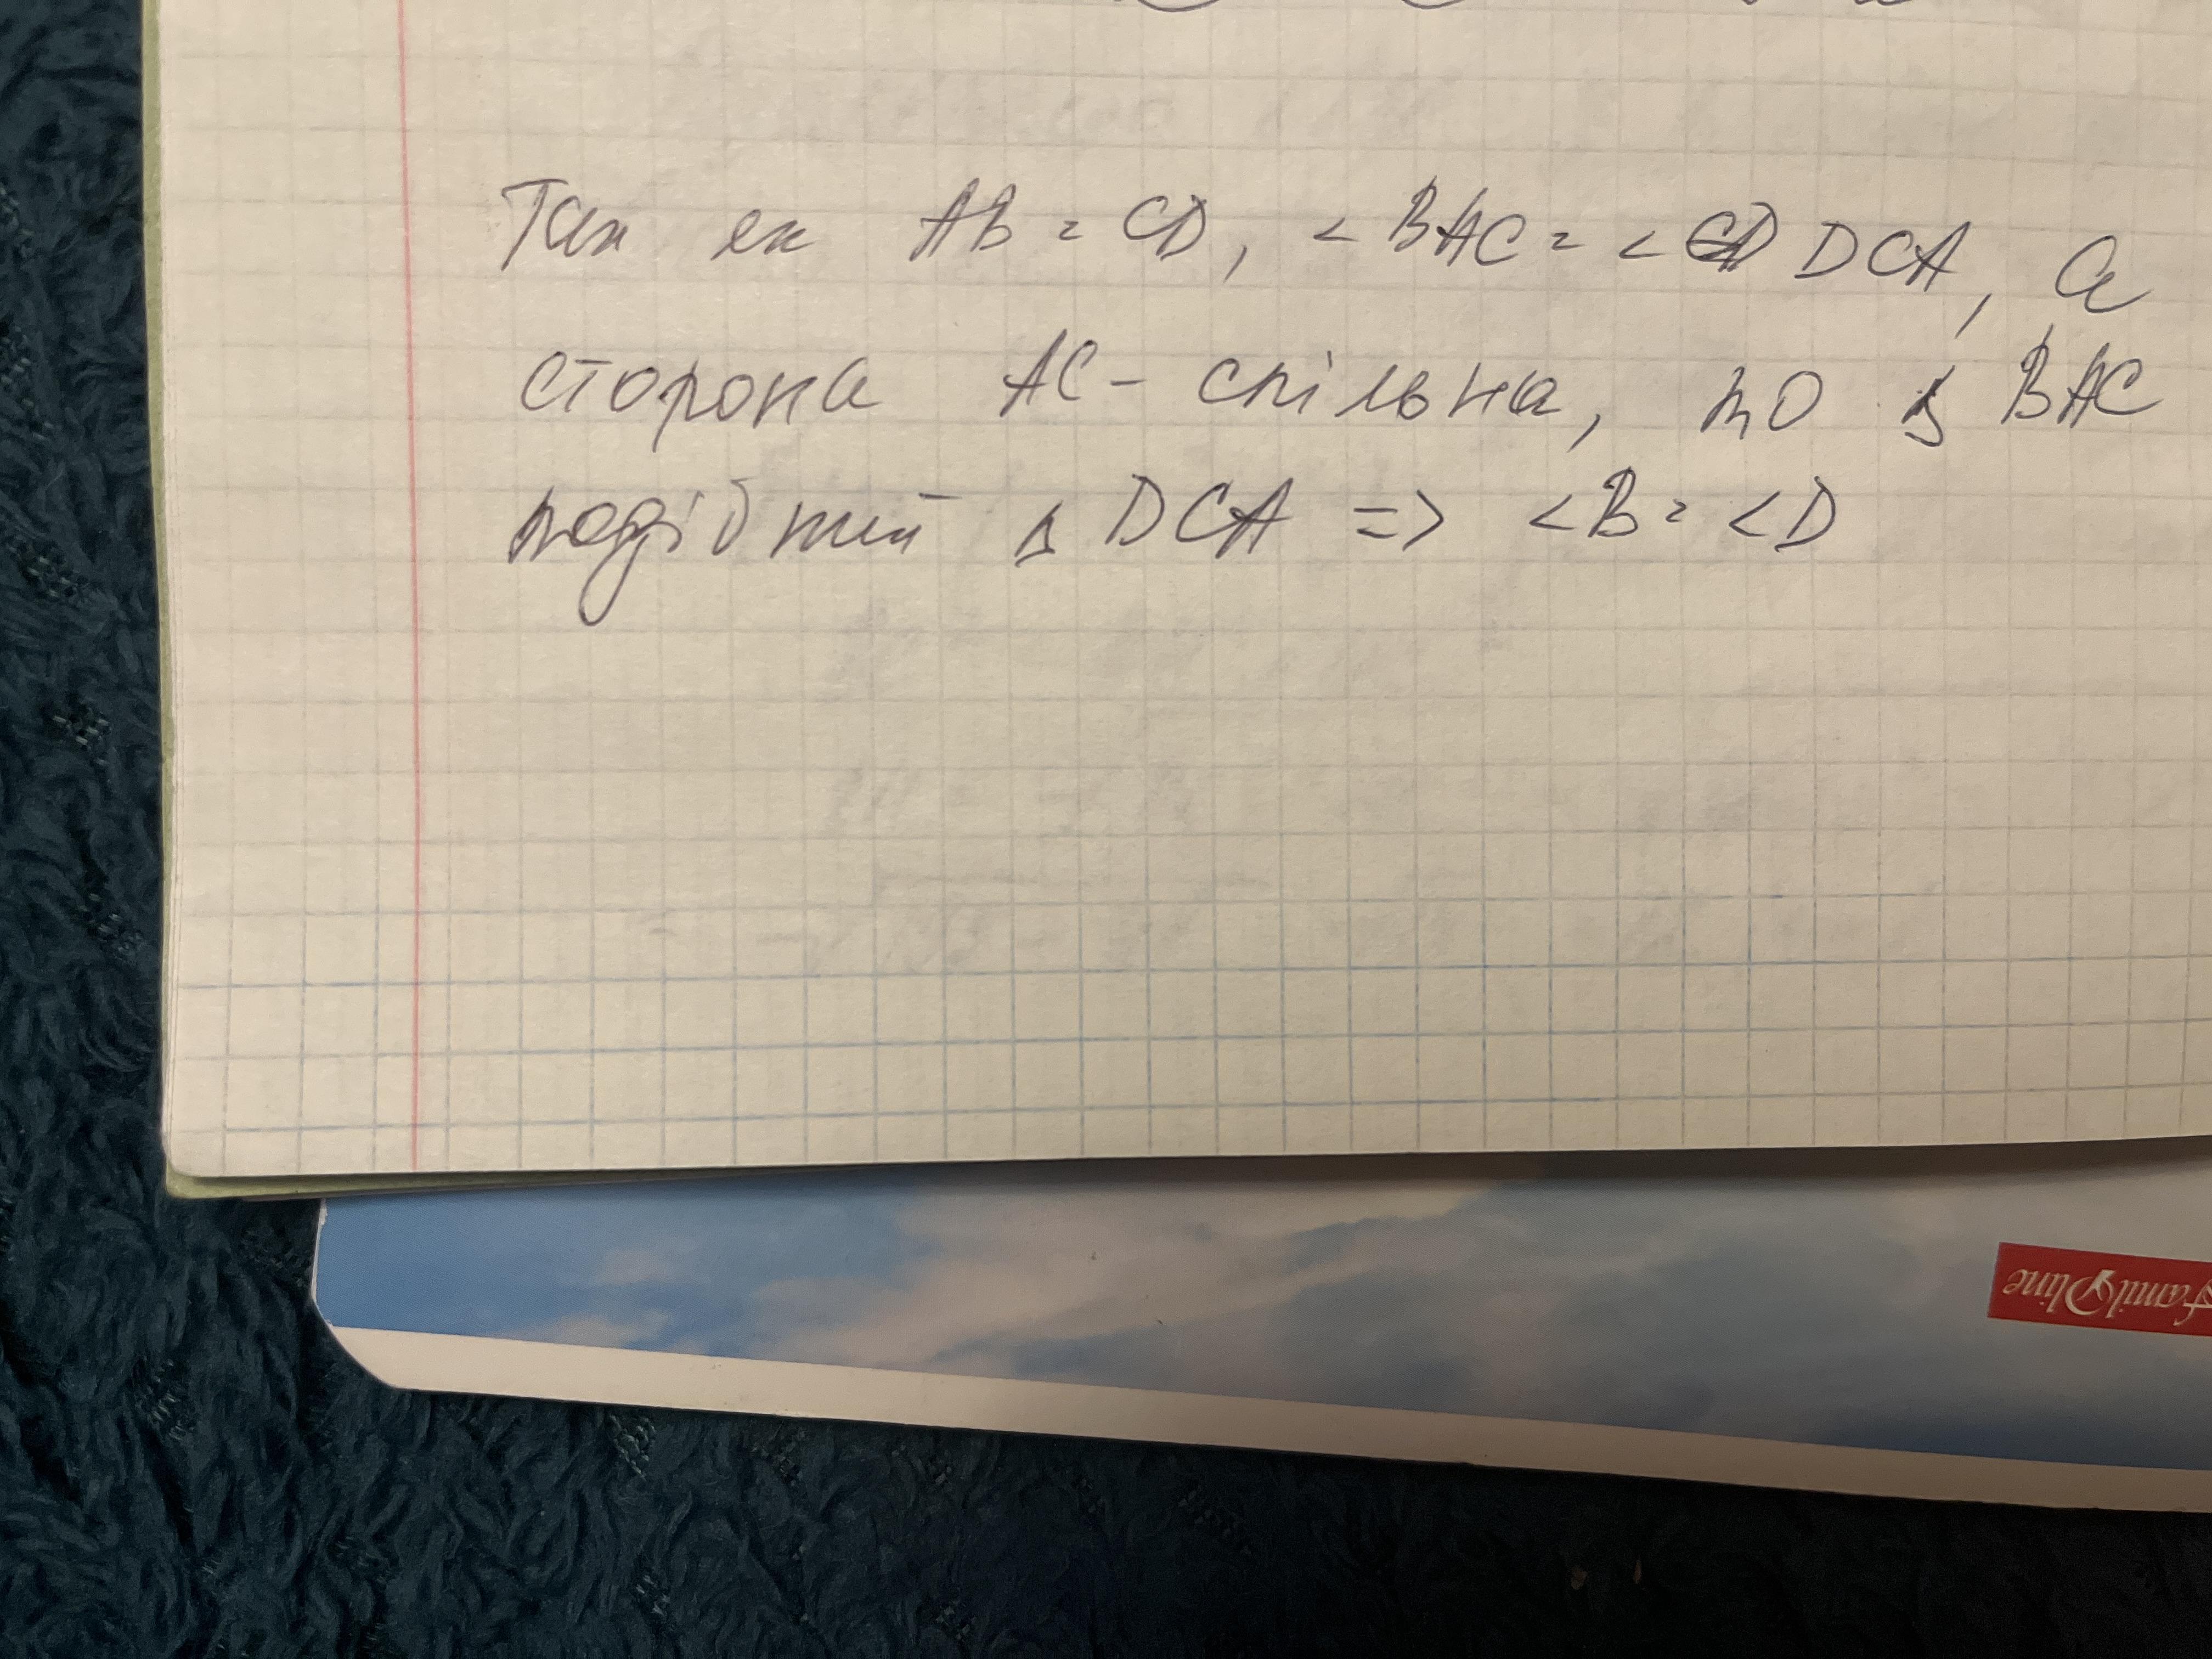 Так як AB = CD, <BAC = <DCA, а
сторона AC - спільна, то Δ BAC
подібний Δ DCA => <B = <D
Family Line